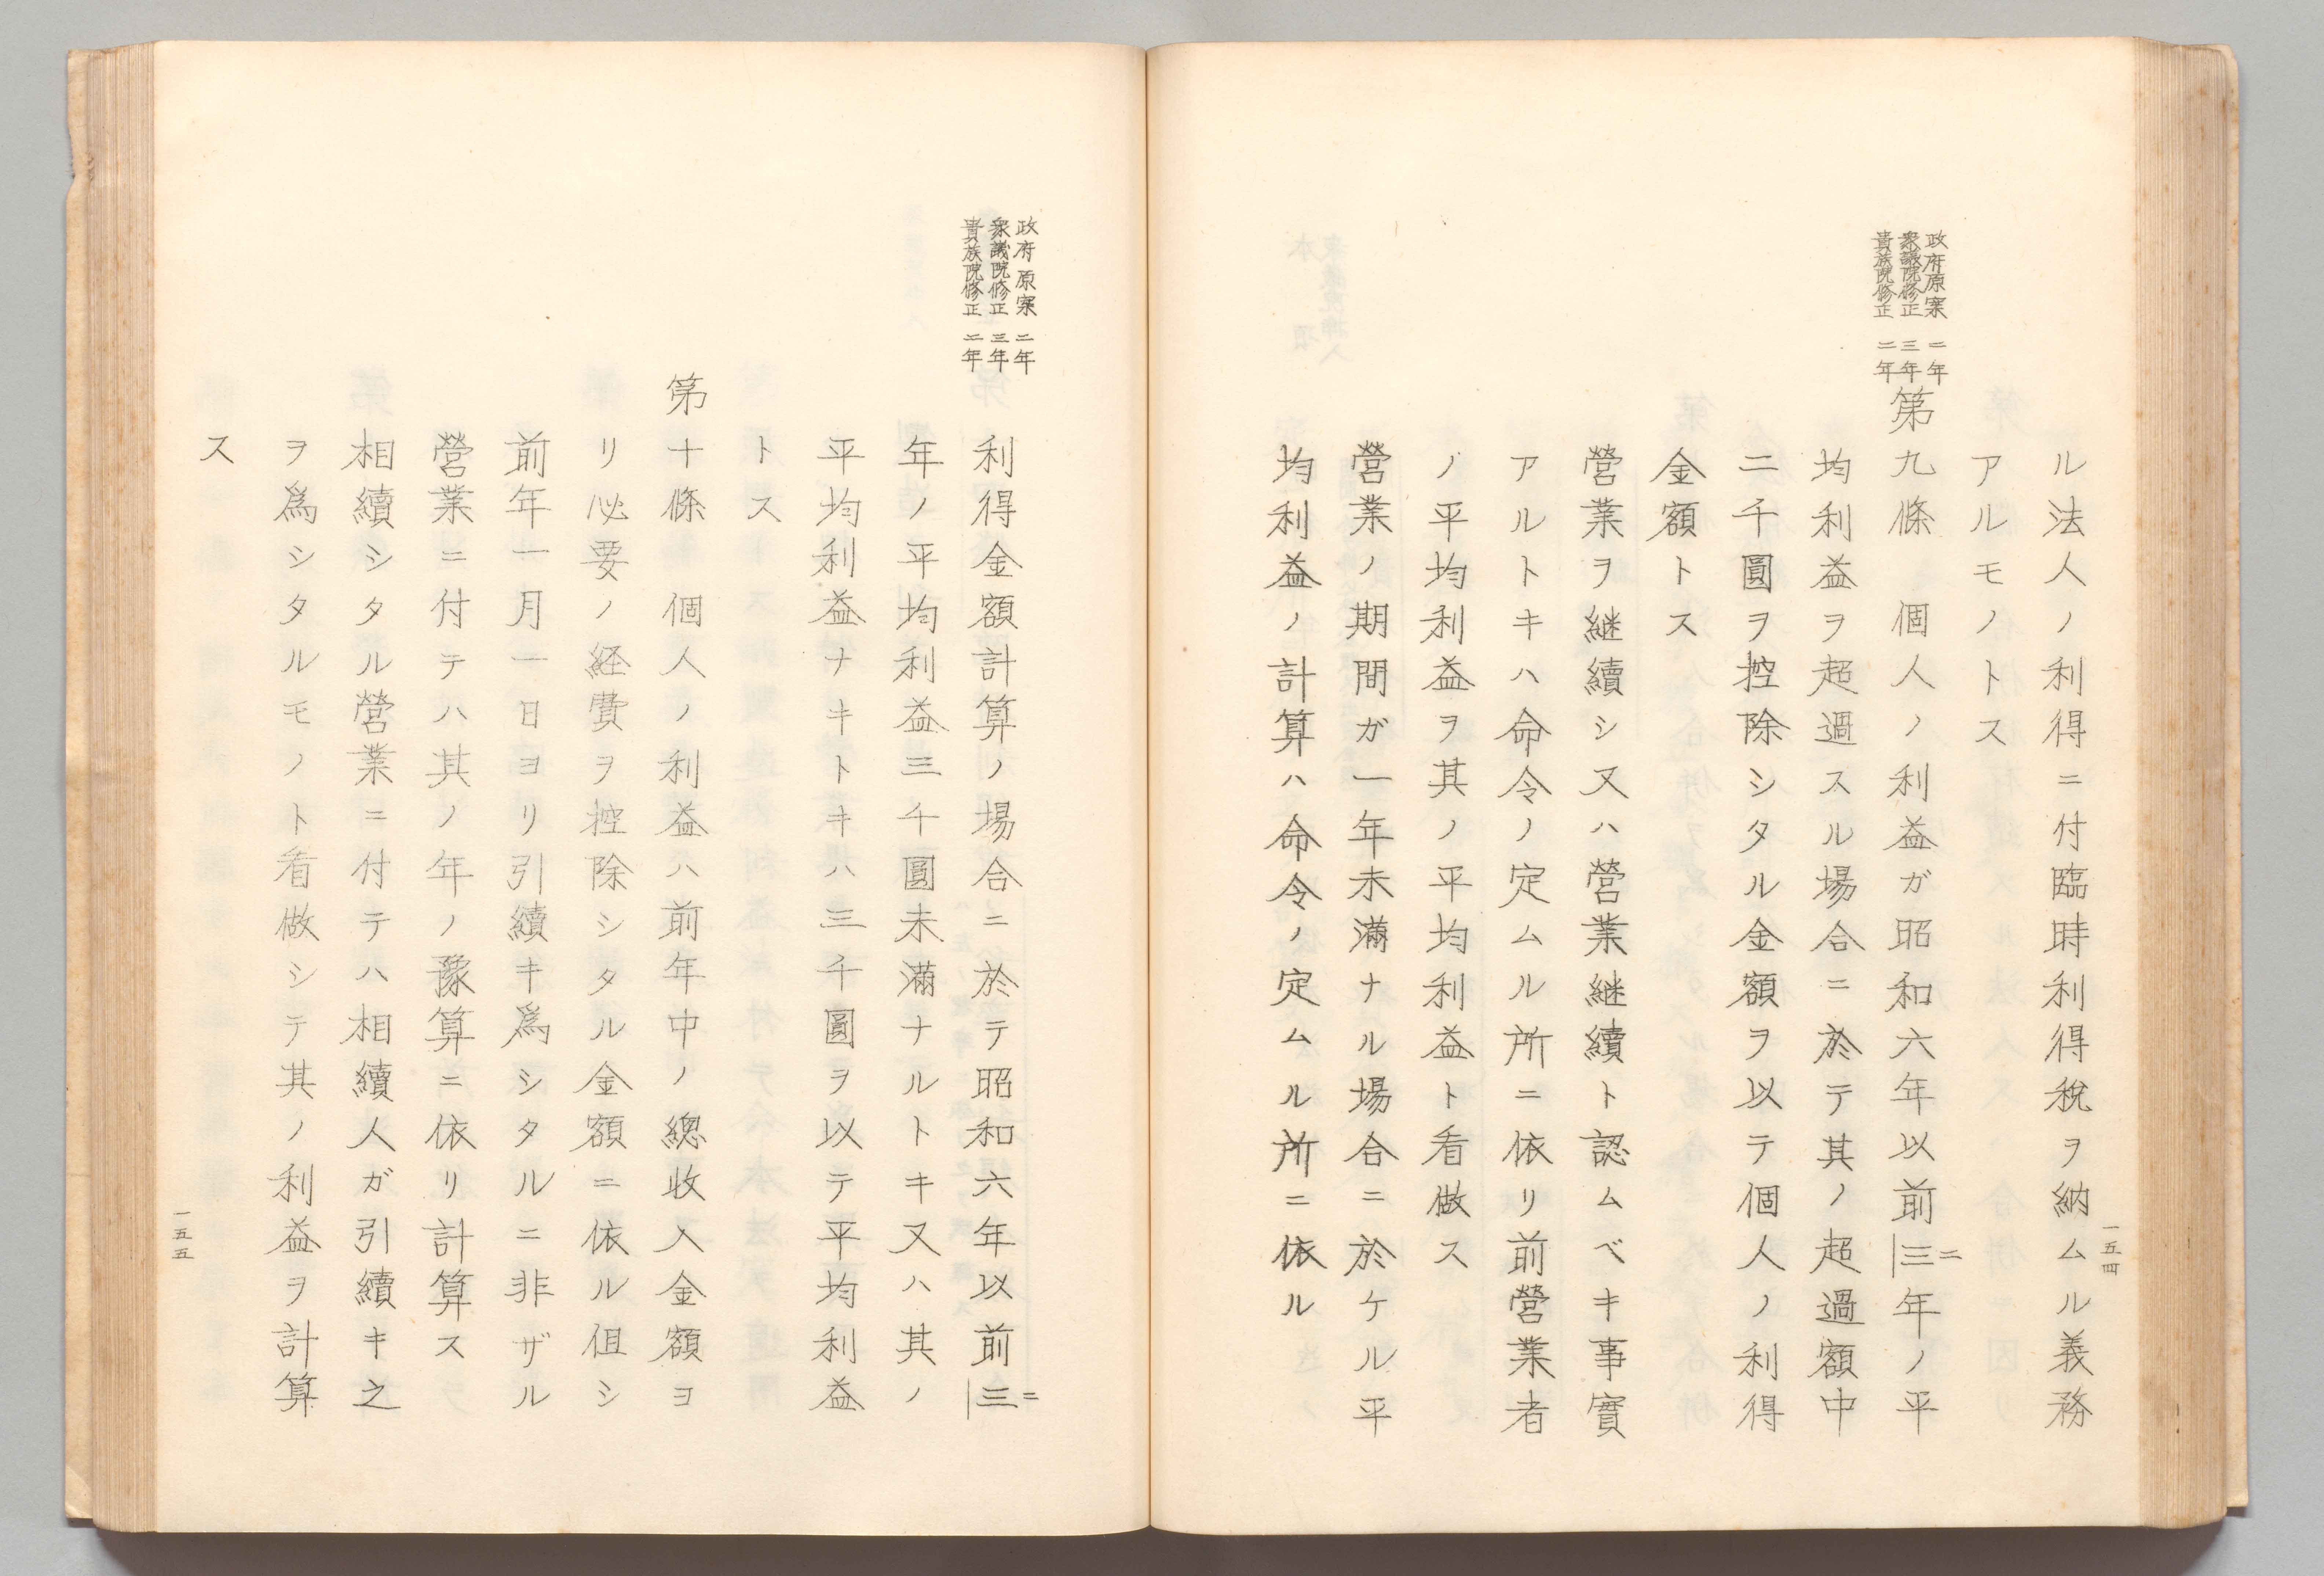 一五四
ル法人ノ利得ニ付臨時利得稅ヲ納ムル義務
アルモノトス
政府原案 二年
衆議院修正 三年
貴族院修正 二年
第九條 個人ノ利益ガ昭和六年以前三年ノ平
二
均利益ヲ超過スル場合ニ於テ其ノ超過額中
二千圓ヲ控除シタル金額ヲ以テ個人ノ利得
金額トス
營業ヲ継續シ又ハ營業継續ト認ムベキ事實
アルトキハ命令ノ定ムル所ニ依リ前營業者
ノ平均利益ヲ其ノ平均利益ト看做ス
營業ノ期間ガ一年未滿ナル場合ニ於ケル平
均利益ノ計算ハ命令ノ定ムル所ニ依ル
政府原案 二年
衆議院修正 三年
貴族院修正 二年
利得金額計算ノ場合ニ於テ昭和六年以前三
二
年ノ平均利益三千圓未滿ナルトキ又ハ其ノ
平均利益ナキトキハ三千圓ヲ以テ平均利益
トス
第十條 個人ノ利益ハ前年中ノ總收入金額ヨ
リ必要ノ経費ヲ控除シタル金額ニ依ル伹シ
前年一月一日ヨリ引續キ爲シタルニ非ザル
營業ニ付テハ其ノ年ノ豫算ニ依リ計算ス
相續シタル營業ニ付テハ相續人ガ引續キ之
ヲ爲シタルモノト看做シテ其ノ利益ヲ計算
ス
一五五